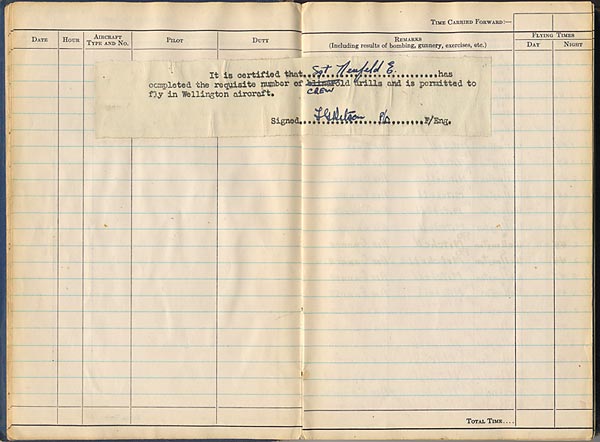 TIME CARRIED FORWARD:—
DATE HOUR AIRCRAFT TYPE AND NO. PILOT DUTY REMARKS (Including results of bombing, gunnery, exercises, etc.) FLYING TIMES DAY NIGHT
It is certified that...Sgt Neufeld E...........has
completed the requisite number of blindfold drills and is permitted to
crew
fly in Wellington aircraft.
Signed.................F/Eng.
TOTAL TIME....